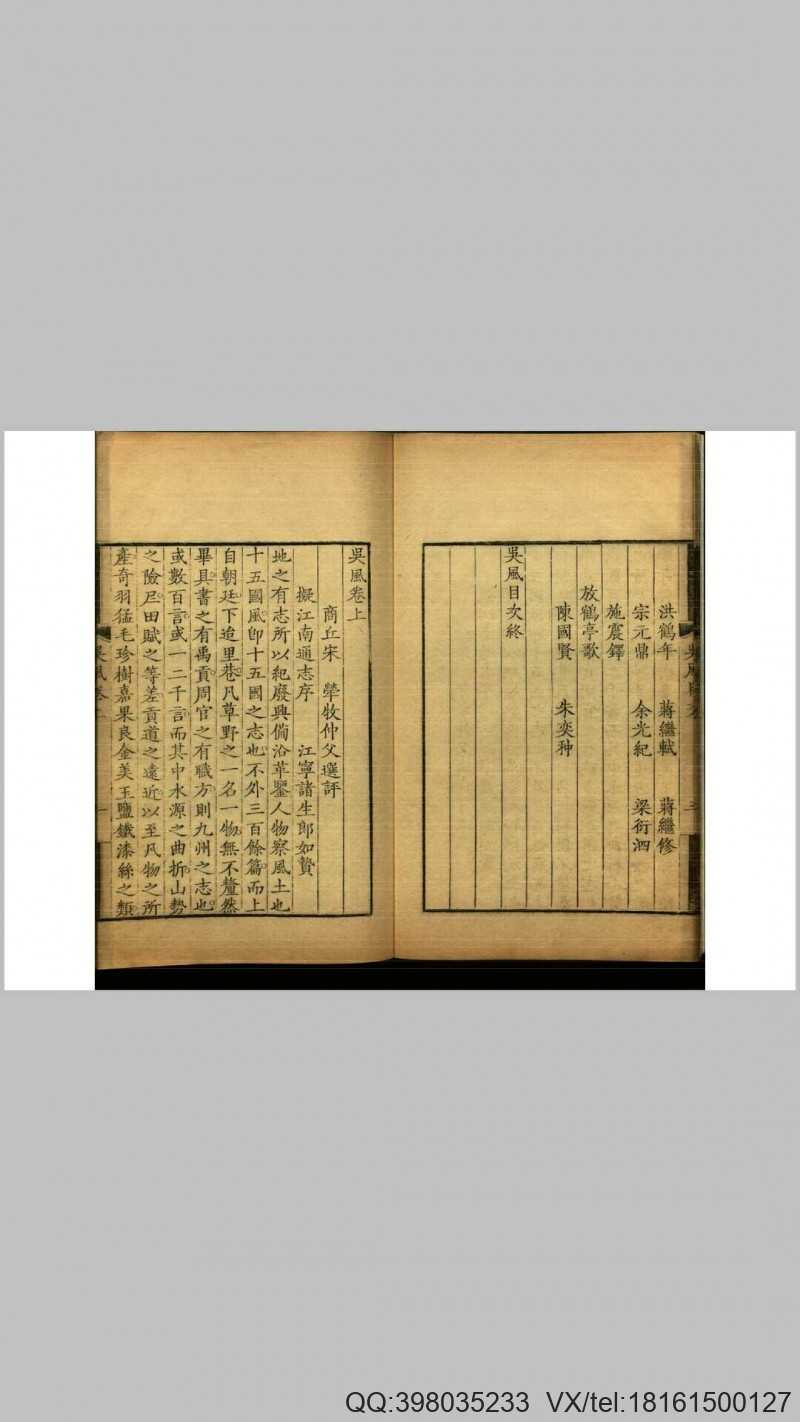 洪鶴年　蔣繼軾　蔣繼修
宗元鼎　余光紀　梁衍泗
施震鐸
放鶴亭歌
陳國賢　朱奕种
吳風目次終
吳風卷上
商丘宋犖牧仲父選評
擬江南通志序　江寧諸生郎如贄
地之有志所以紀廢興備沿革鑒人物察風土也
十五國風卽十五國之志也不外三百餘篇而上
自朝廷下逮里巷凡草野之一名一物無不釐然
畢具書之有禹貢周官之有職方則九州之志也
或數百言或一二千言而其中水源之曲折山勢
之險阨田賦之等差貢道之遠近以至凡物之所
產奇羽猛毛珍樹嘉果良金美玉鹽鐵漆絲之類
QQ:398035233 VX/tel:18161500127